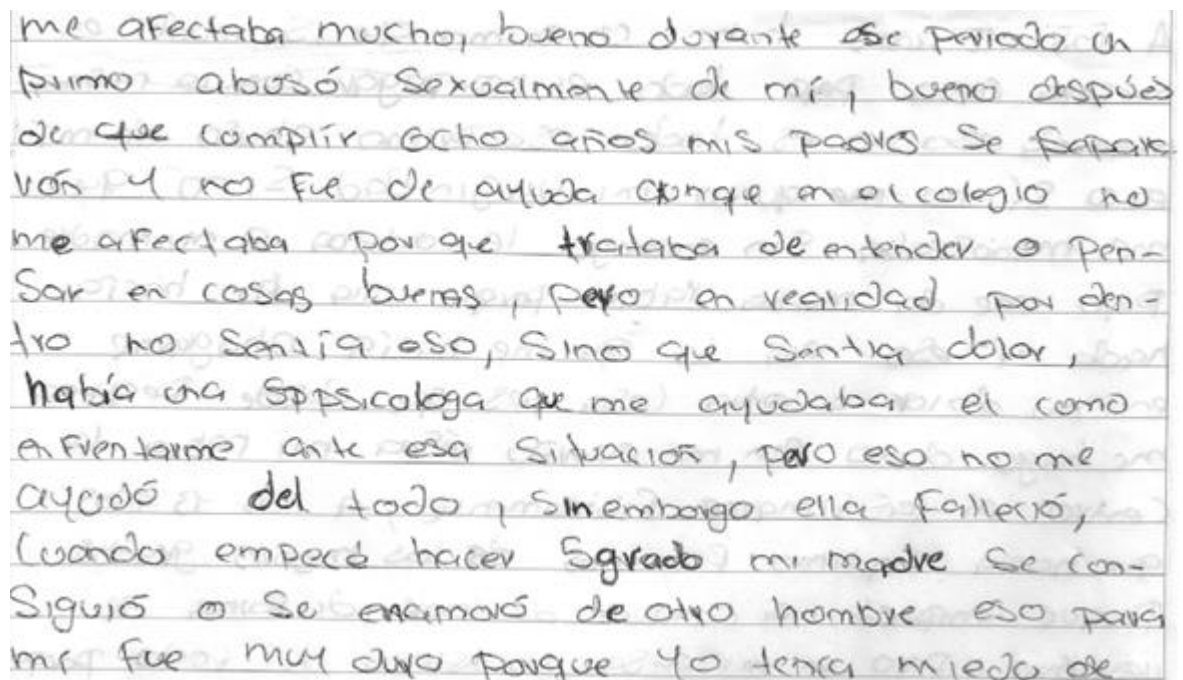 me afectaba mucho, bueno durante ese periodo un
primo abusó sexualmente de mí, bueno después
de que complír ocho años mis padres se separa
rón y no fue de ayuda aunque en el colegio no
me afectaba porque trataba de entender o pen-
sar en cosas buenas, pero en realidad por den-
tro no sentía eso, sino que sentia dolor,
había una sppsicologa que me ayudaba el como
enfrentarme ante esa situación, pero eso no me
ayudó del todo, sinembargo ella falleció,
Cuando empecé hacer 5grado mi madre se con-
siguió o se enamoró de otro hombre eso para
mi fue muy duro porque yo tenia miedo de